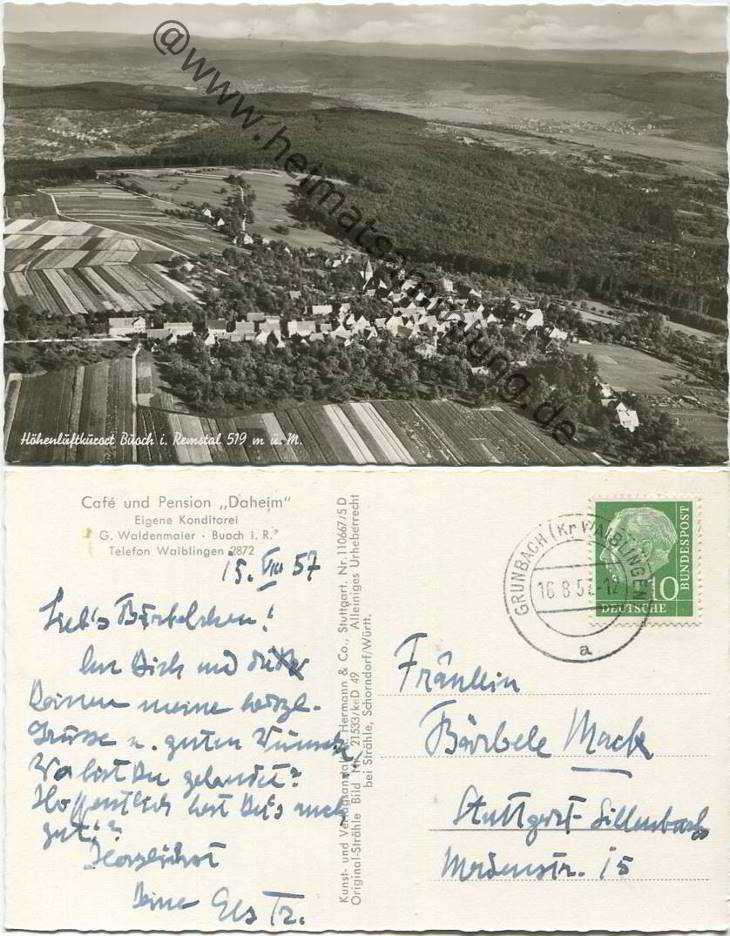 @www.heimatsammlung.de
Höhenluftkurort Buoch i. Remstal 519 m ü. M.
Café und Pension „Daheim"
Eigene Konditorei
G. Waldenmaier · Buoch i. R.
Telefon Waiblingen 2872
15. VIII 57
Lieb's Bärbelchen!
Deinen meine herzl.
Grüsse u. guten Wünsche
Wo bist Du gelandet?
Hoffentlich hast Du's auch
gut!?
Herzlichst
Deine
Kunst- und Verlagsanstalt Hermann & Co., Stuttgart. Nr. 110667/5 D
Original-Strähle Bild Nr. 21533/keD 49 Alleiniges Urheberrecht
bei Strähle, Schorndorf/Württ.
GRUNBACH (Kr WAIBLINGEN)
16.8.57.-12
a
10
DEUTSCHE BUNDESPOST
Fräulein
Bärbele Mack
Stuttgart-Sillenbuch
15